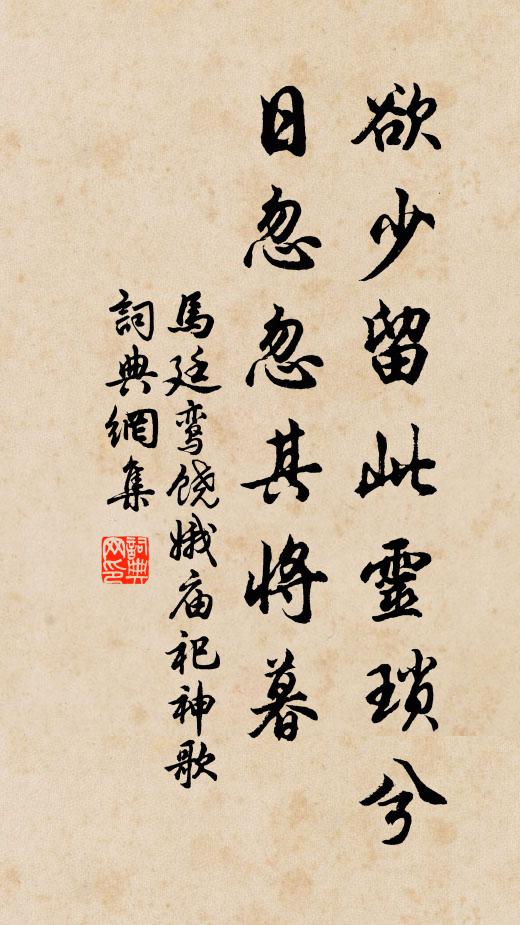 欲少留此靈瑣兮
日忽忽其將暮
馬廷鸾饶娥庙祀神歌
詞典網集
詞典
网印